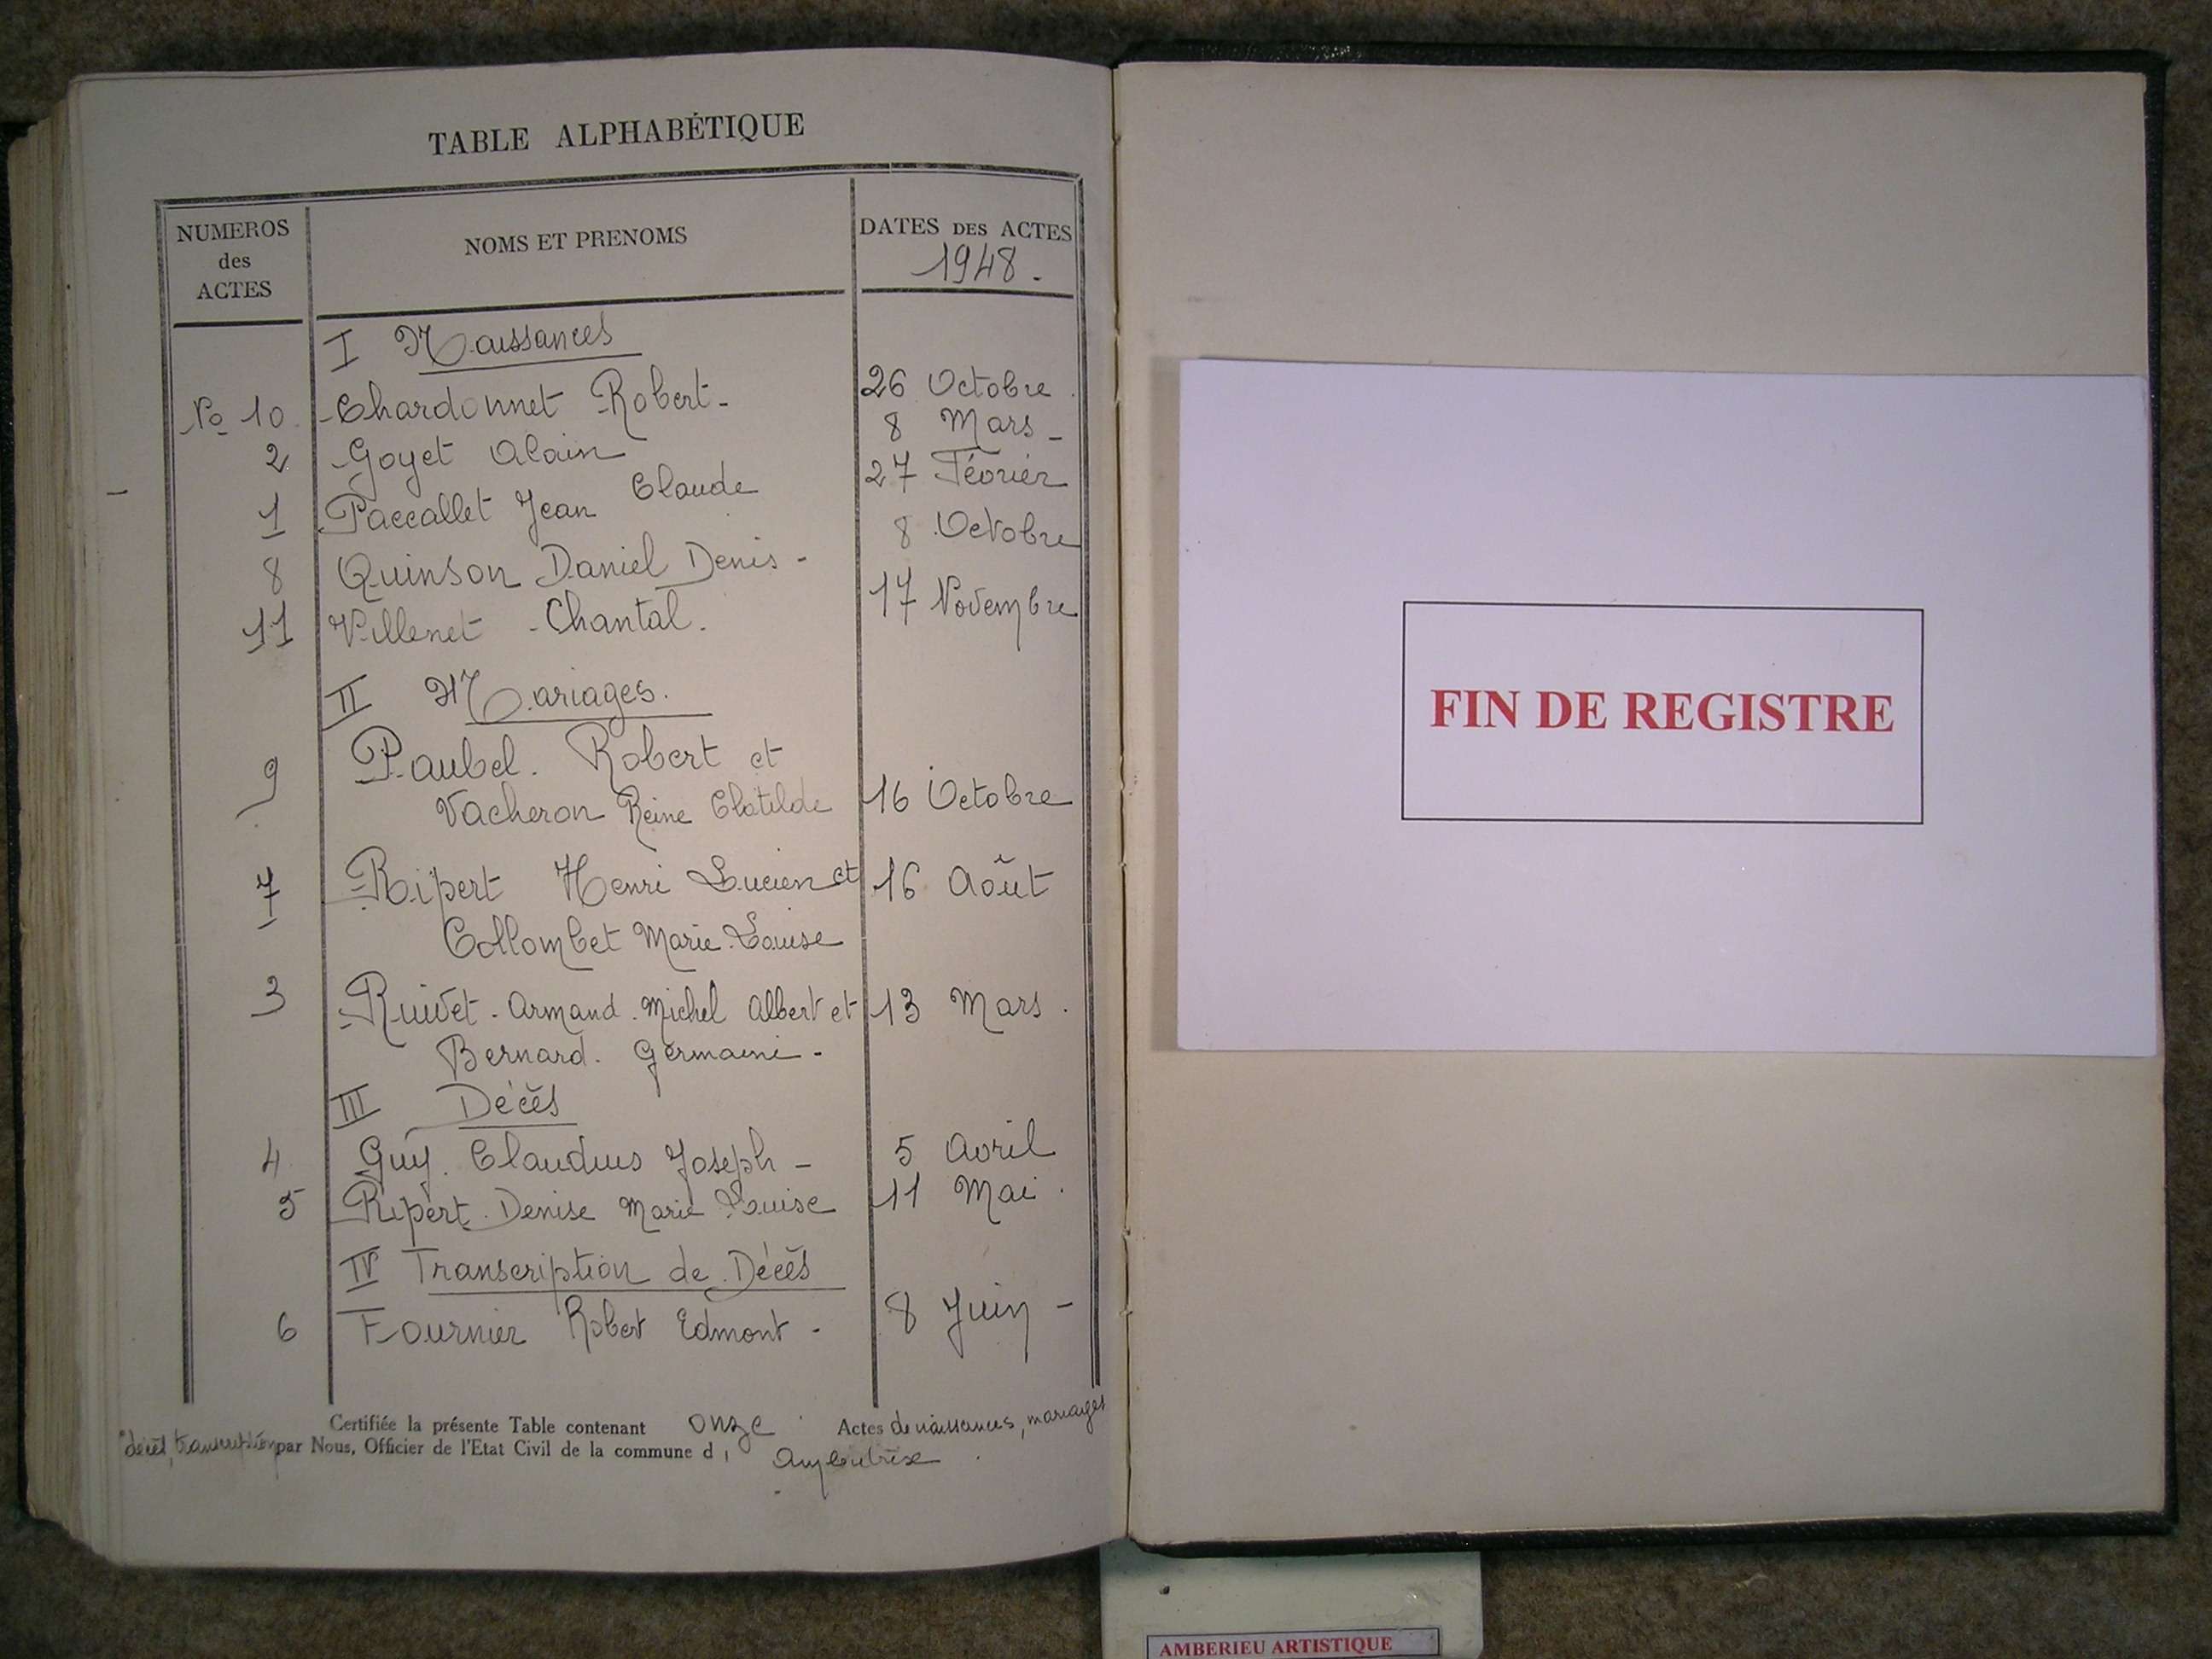 TABLE ALPHABÉTIQUE
NUMEROS des ACTES NOMS ET PRENOMS DATES DES ACTES
1948.
I Naissances
No 10 Chardonnet Robert 26 Octobre
2 Goyet Alain 8 Mars
1 Paccallet Jean Claude 27 Février
8 Quinson Daniel Denis 8 Octobre
11 Villenet Chantal. 17 Novembre
II Mariages.
9 Paubel. Robert et
Vacheron Reine Clotilde 16 Octobre
7 Ripert Henri Lucien et 16 Août
Collombet Marie-Louise
3 Ruivet Armand Michel Albert et 13 Mars.
Bernard. Germaine
III Décès
4 Guy. Claudius Joseph 5 Avril
5 Ripert Denise Marie Louise 11 Mai.
IV Transcription de Décès
6 Fournier Robert Edmont 8 Juin
Certifiée la présente Table contenant onze Actes de naissances, mariages
décès, transcription par Nous, Officier de l'Etat Civil de la commune d'Ambutrix
FIN DE REGISTRE
AMBERIEU ARTISTIQUE